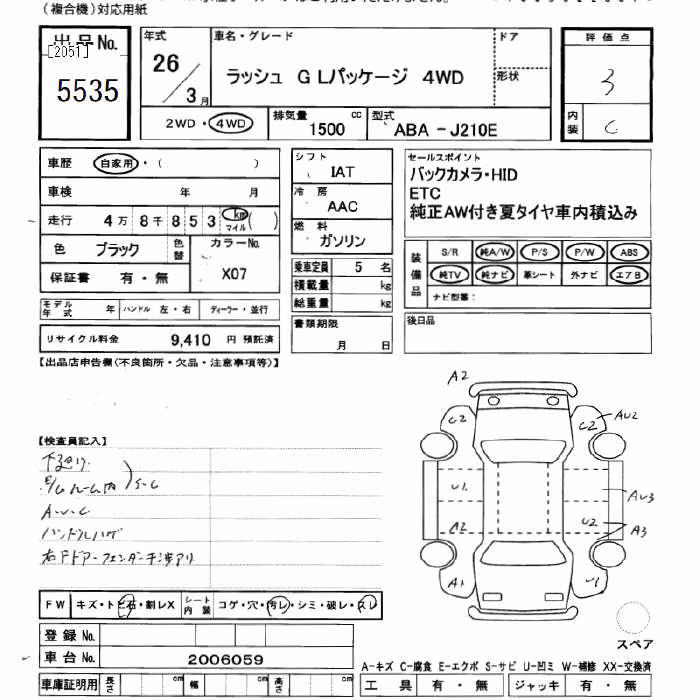 (複合機)対応用紙
出品No.
[2051]
5535
年式
26/3月
車名・グレード
ラッシュ GLパッケージ 4WD
ドア
形状
評価点
3
内装
C
2WD・4WD
排気量
1500 cc
型式
ABA - J210E
車歴 自家用・( )
車検 年 月
走行 4万8千853 km マイル ( )
色 ブラック 色替 カラーNo.
保証書 有・無 X07
モデル年式 年 ハンドル 左・右 ディーラー・並行
リサイクル料金 9,410 円 預託済
シフト
IAT
冷房
AAC
燃料
ガソリン
乗車定員 5 名
積載量 kg
総重量 kg
書類期限
月 日
セールスポイント
バックカメラ・HID
ETC
純正AW付き夏タイヤ車内積込み
装備品
S/R 純A/W P/S P/W ABS
純TV 純ナビ 革シート 外ナビ エアB
ナビ型番:
後日品
【出品店申告欄(不良箇所・欠品・注意事項等)】
【検査員記入】
下廻り
E/Gルーム内 S-C
A-U-C
ハンドルハゲ
右Fドアーフェンダー干渉アリ
A2
U2
AU2
C2
U1
AU3
A2
U2
A3
A1
U1
スペア
FW キズ・トビ石・割レX シート内装 コゲ・穴・汚レ・シミ・破レ・スレ
登録No.
車台No. 2006059
車庫証明用 長さ cm 幅 cm 高さ cm
A-キズ C-腐食 E-エクボ S-サビ U-凹ミ W-補修 XX-交換済
工具 有・無 ジャッキ 有・無